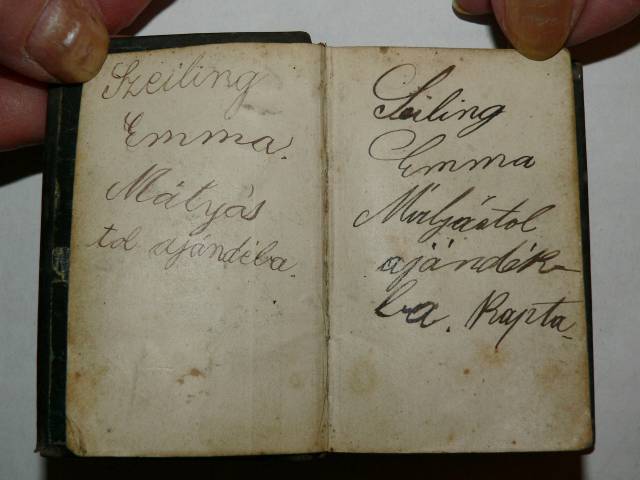 Szeiling
Emma.
Mátyás
tol ajándéba.
Seiling
Emma
Mátyástol
ajándék-
ba. Kapta